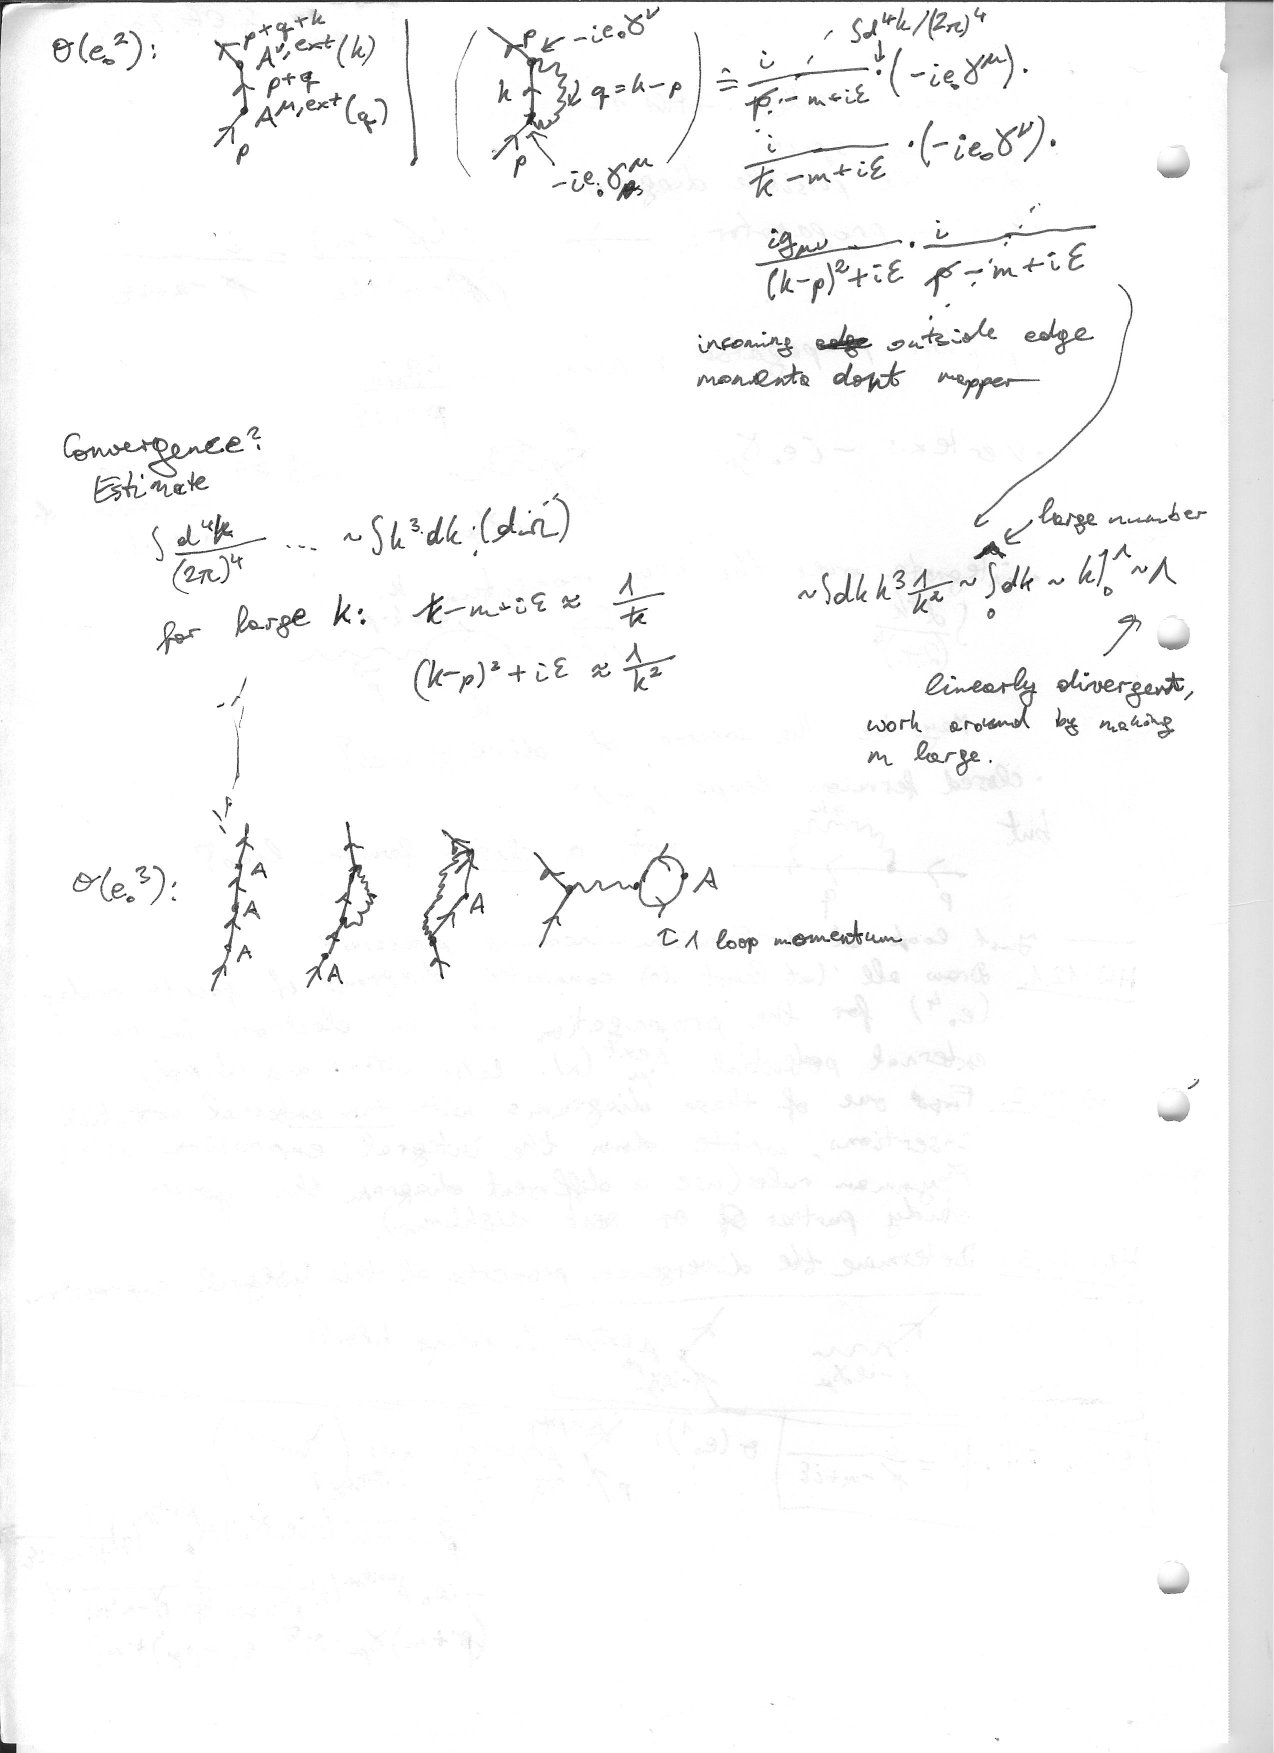 O(e₀²):
p+q+k
A^ν,ext(k)
p+q
A^μ,ext(q)
p
p
-ie₀γ^ν
k
q=k-p
p
-ie₀γ^μ
≙ i/(p̸-m+iε) · ∫d⁴k/(2π)⁴ (-ie₀γ^μ) ·
i/(k̸-m+iε) · (-ie₀γ^ν) ·
ig_μν/((k-p)²+iε) · i/(p̸-m+iε)
incoming outside edge
momenta dont
Convergence?
Estimate
∫ d⁴k/(2π)⁴ ... ~ ∫k³dk
for large k: k̸-m+iε ≈ 1/k̸
(k-p)²+iε ≈ 1/k²
large number
~∫dk k³ 1/k² ~ ∫₀^Λ dk ~ k]₀^Λ ~ Λ
linearly divergent,
work around by making
m large.
O(e₀³):
A
A
A
A
A
A
1 loop momentum